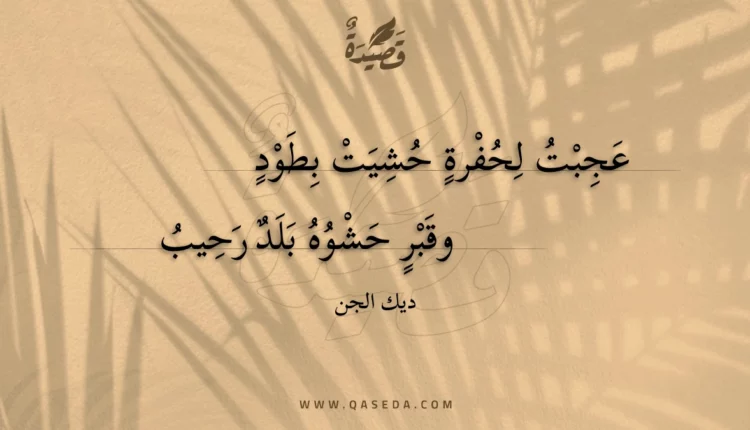 قَصِيدَةٌ
عَجِبْتُ لِحُفْرةٍ حُشِيَتْ بِطَوْدٍ
وقَبْرٍ حَشْوُهُ بَلَدٌ رَحِيبُ
ديك الجن
WWW.QASEDA.COM